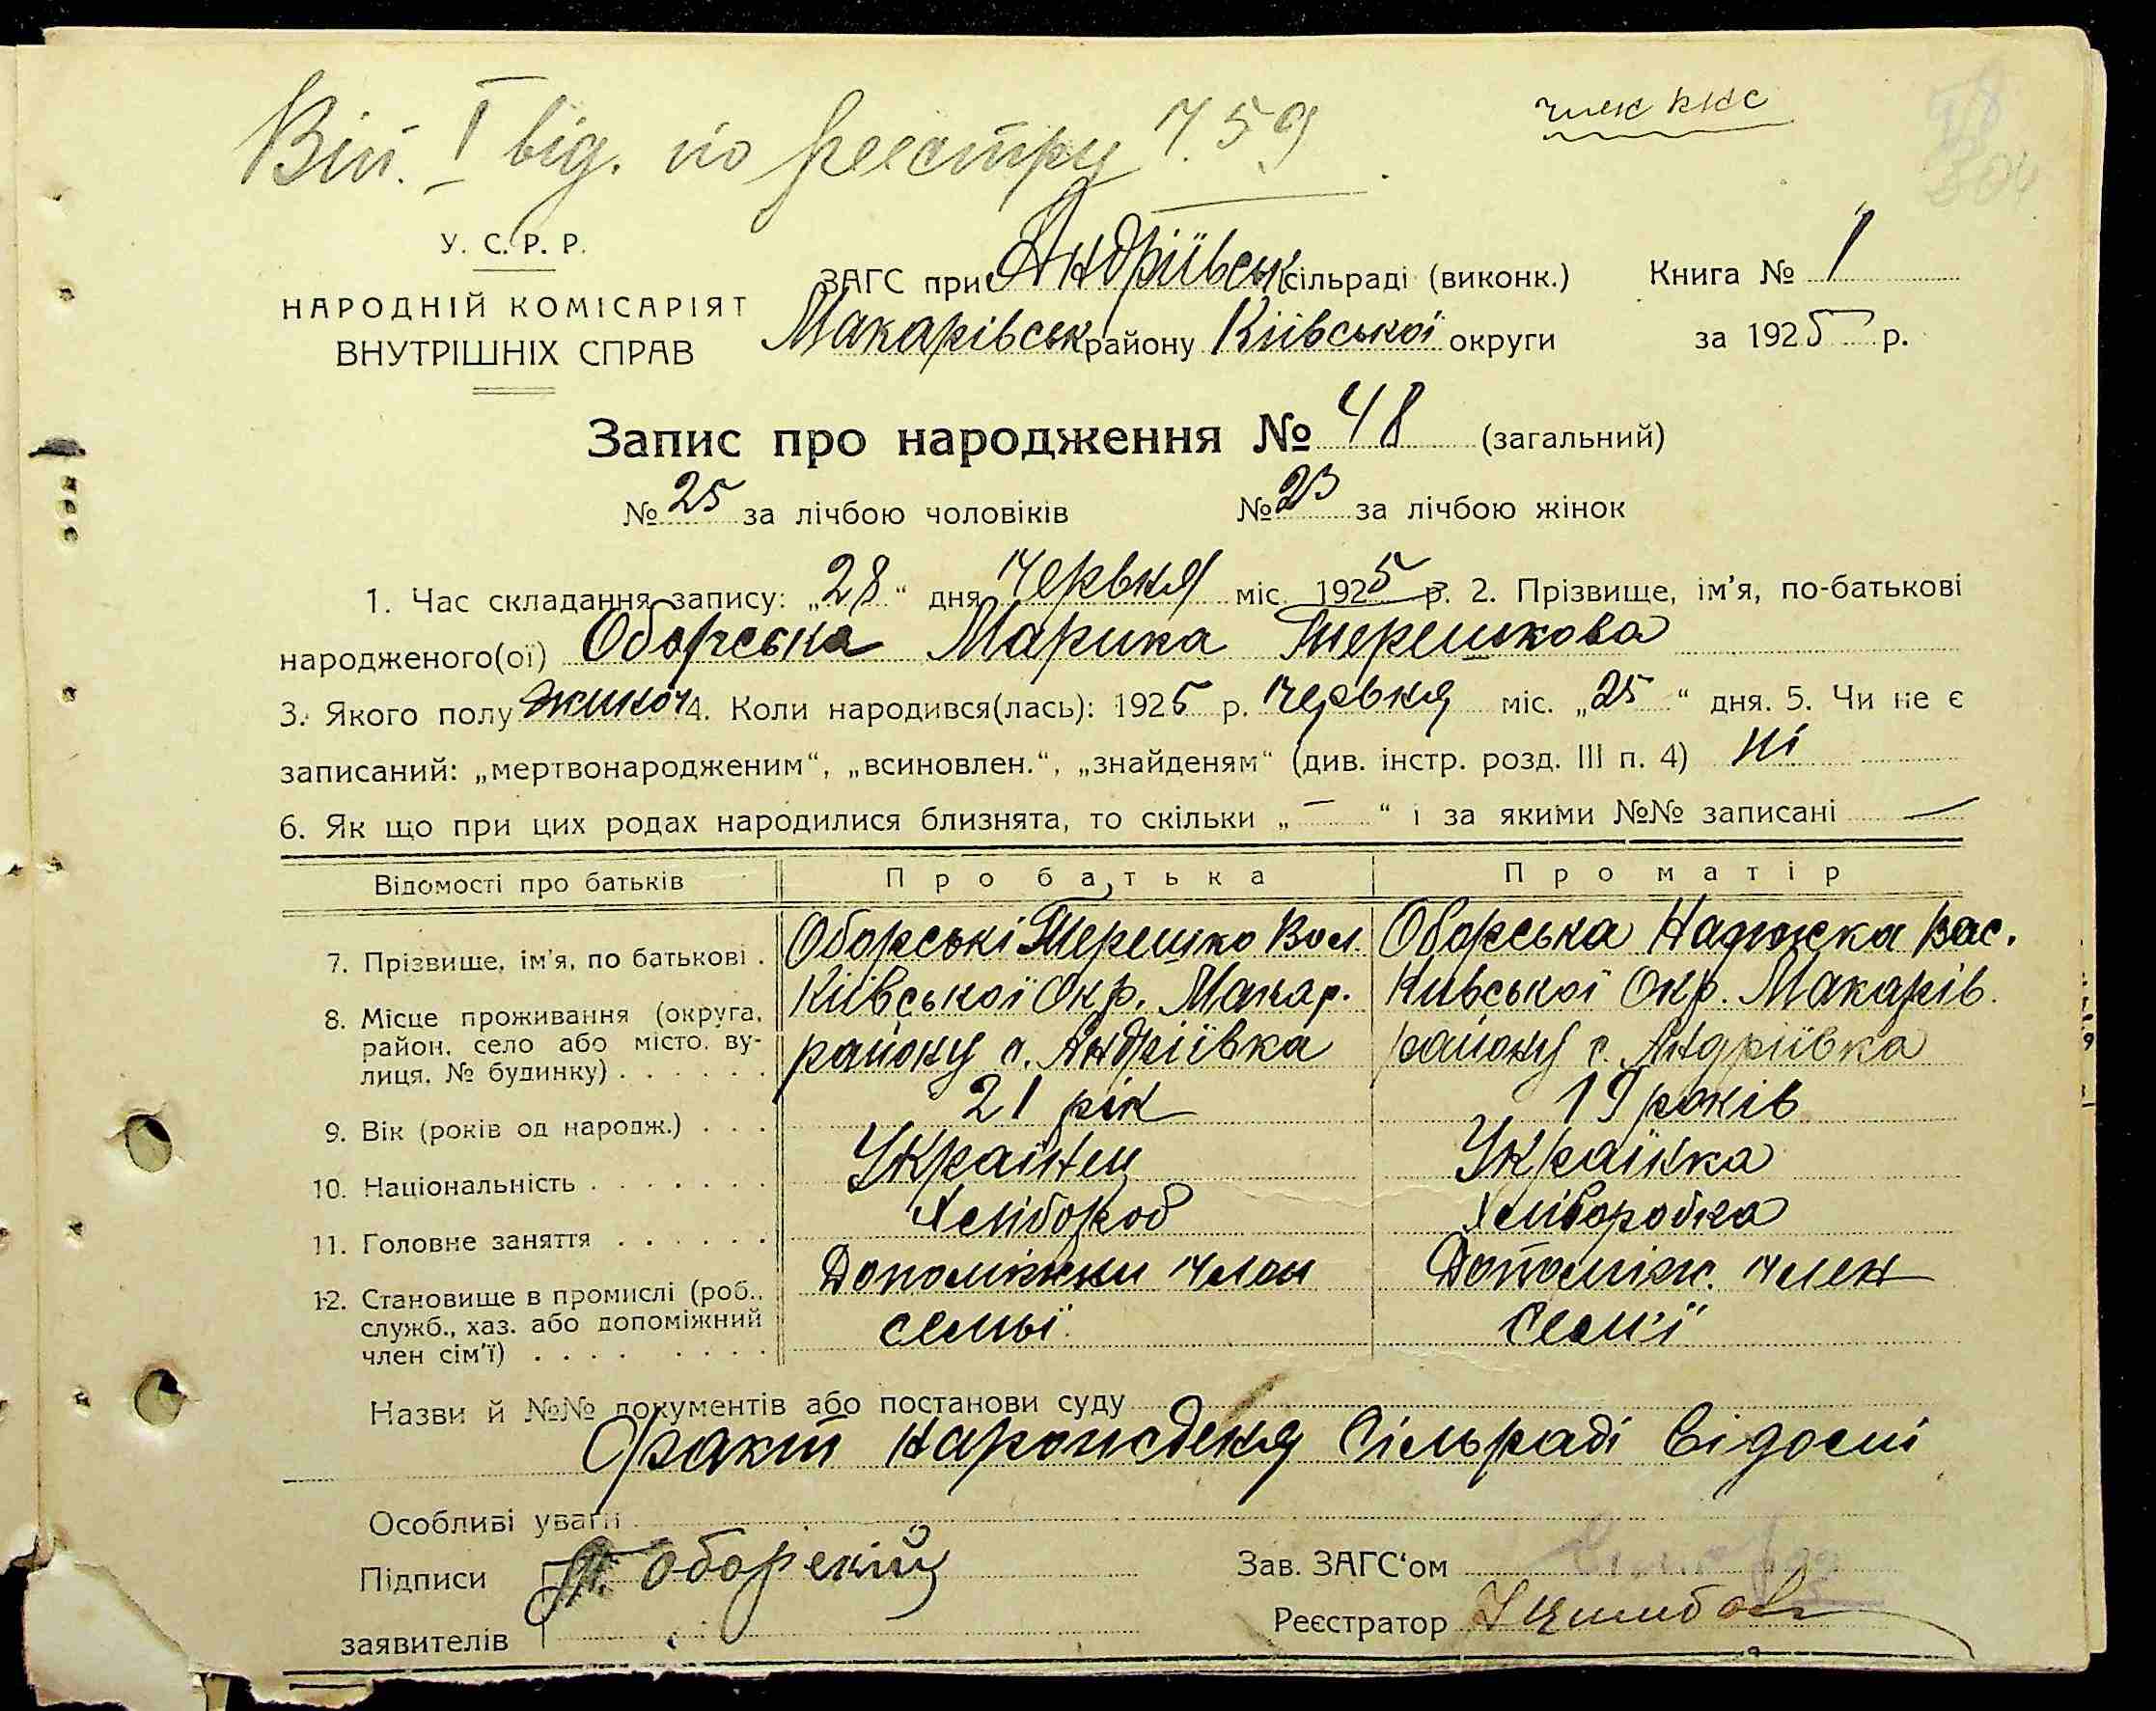 Вип. І від. по реестру 759
член ККС
304
У. С. Р. Р.
НАРОДНІЙ КОМІСАРІЯТ
ВНУТРІШНІХ СПРАВ
ЗАГС при Андріївськ сільраді (виконк.)
Макарівськ району Київської округи
Книга № 1
за 1925 р.
Запис про народження № 48 (загальний)
№ 25 за лічбою чоловіків № 23 за лічбою жінок
1. Час складання запису: „28“ дня Червня міс. 1925 р. 2. Прізвище, ім'я, по-батькові
народженого(ої) Оборська Марика Терешкова
3. Якого полу жиноч 4. Коли народився(лась): 1925 р. Червня міс. „25“ дня. 5. Чи не є
записаний: „мертвонародженим“, „всиновлен.“, „знайденям“ (див. інстр. розд. III п. 4) Ні
6. Як що при цих родах народилися близнята, то скільки „—“ і за якими №№ записані —
Відомості про батьків Про батька Про матір
7. Прізвище, ім'я, по батькові . Оборські Терешко Вол. Оборська Надюжка Вас.
8. Місце проживання (округа, район, село або місто, вулиця, № будинку) . . . . . . Київської Окр. Макар. Кивської Окр. Макарів.
району с. Андріївка району с. Андріївка
9. Вік (років од народж.) . . . 21 рік 19 років
10. Національність . . . . . . . Українец Українка
11. Головне заняття . . . . . . Хлібороб Хліборобка
12. Становище в промислі (роб., служб., хаз. або допоміжний член сім'ї) . . . . . . . . Допоміжни член Допоміж. член
семьї семʼї
Назви й №№ документів або постанови суду
Факт народженя Сільраді відомі
Особливі уваги
Підписи Т. Оборский Зав. ЗАГС‘ом
заявителів Реєстратор